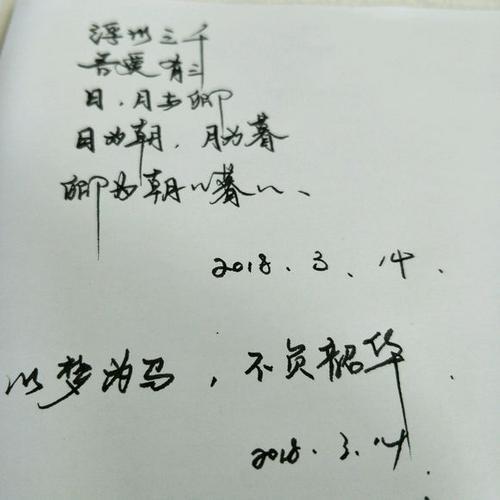 浮世三千
吾爱有三
日、月与卿
日为朝，月为暮
卿为朝朝暮暮、
2018.3.14.
以梦为马，不负韶华.
2018.3.14.